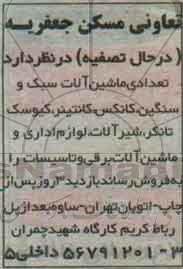 تعاونی مسکن جعفریه
(درحال تصفیه) درنظردارد
تعدادی ماشین آلات سبک و
سنگین، کانکس، کانتینر، کیوسک
تانکر، شیرآلات، لوازم اداری و
ماشین آلات برقی وتاسیسات را
به فروش رساند بازدید ۳روز پس از
چاپ - اتوبان تهران - ساوه بعد از پل
رباط کریم کارگاه شهید چمران
۳-۵۶۷۹۱۲۰۱ داخلی ۵